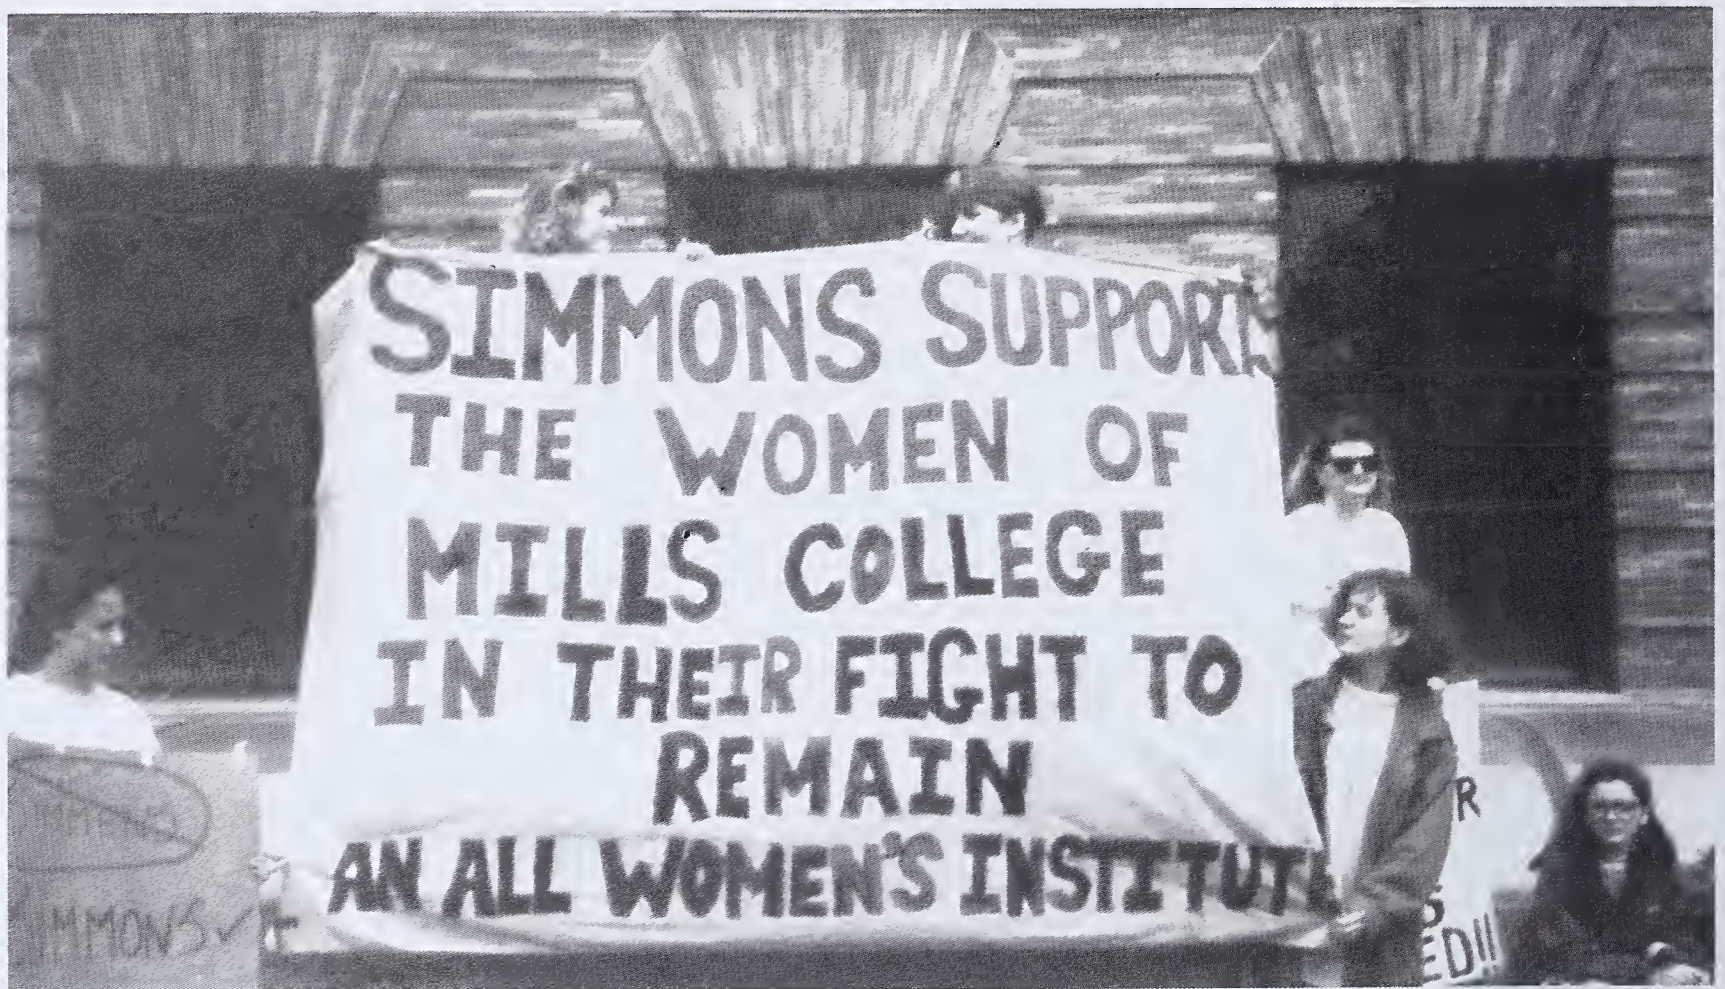 SIMMONS SUPPORT
THE WOMEN OF
MILLS COLLEGE
IN THEIR FIGHT TO
REMAIN
AN ALL WOMEN'S INSTITUT
R
S
ED!!